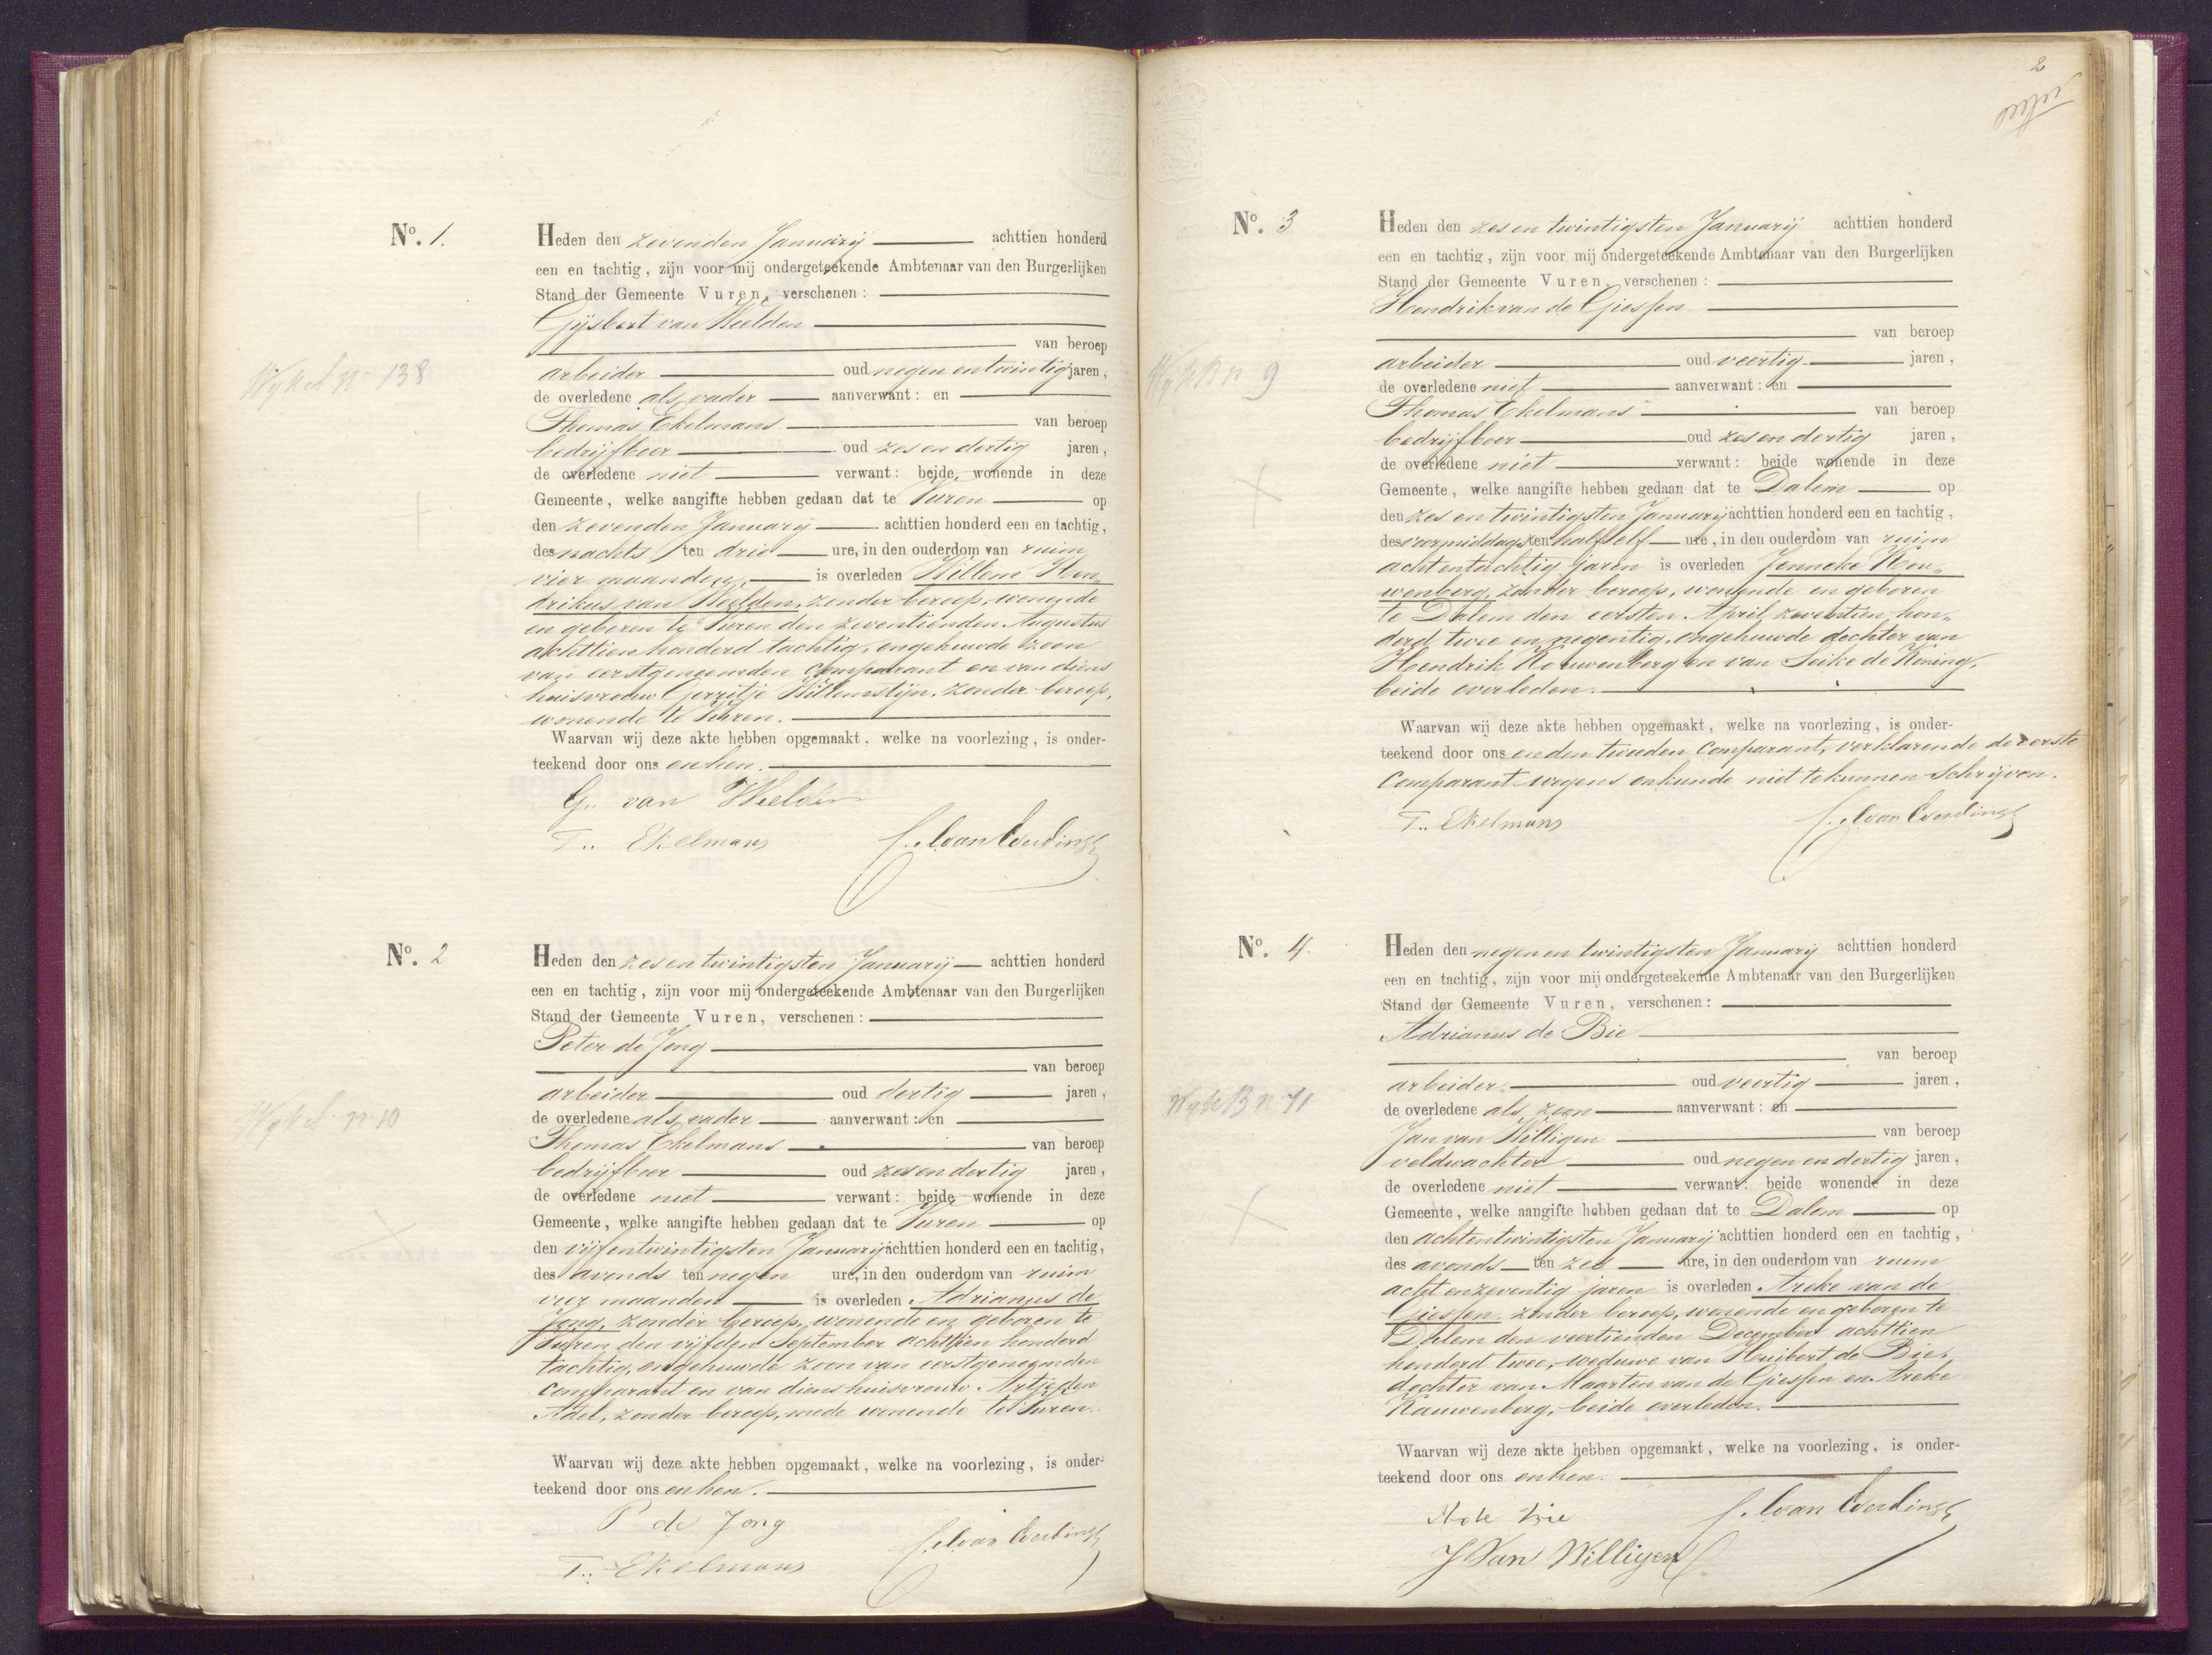 Nº. 1.
Heden den zevenden Januarij achttien honderd
een en tachtig, zijn voor mij ondergeteekende Ambtenaar van den Burgerlijken
Stand der Gemeente Vuren, verschenen:
Gijsbert van Weelden
van beroep
arbeider oud negen en twintig jaren,
de overledene als vader aanverwant: en
Thomas Ekelmans van beroep
bedrijfboer oud zes en dertig jaren,
de overledene niet verwant: beide wonende in deze
Gemeente, welke aangifte hebben gedaan dat te Vuren op
den zevenden Januarij achttien honderd een en tachtig,
des nachts ten drie ure, in den ouderdom van ruim
vier maanden is overleden Willem Hen„
drikus van Weelden, zonder beroep, wonende
en geboren te Vuren den zeventienden Augustus
achttien honderd tachtig, ongehuwde zoon
van eerstgenoemden comparant en van diens
huisvrouw Gerretje Willemstijn, zonder beroep,
wonende te Vuren.
Waarvan wij deze akte hebben opgemaakt, welke na voorlezing, is onder-
teekend door ons en hen.
G. van Weelden
T. Ekelmans
Wyk A nº 138
Nº. 2
Heden den zes en twintigsten Januarij achttien honderd
een en tachtig, zijn voor mij ondergeteekende Ambtenaar van den Burgerlijken
Stand der Gemeente Vuren, verschenen:
Peter de Jong
van beroep
arbeider oud dertig jaren,
de overledene als vader aanverwant: en
Thomas Ekelmans van beroep
bedrijfboer oud zes en dertig jaren,
de overledene niet verwant: beide wonende in deze
Gemeente, welke aangifte hebben gedaan dat te Vuren op
den vijfentwintigsten Januarij achttien honderd een en tachtig,
des avonds ten negen ure, in den ouderdom van ruim
vier maanden is overleden Adrianus de
Jong, zonder beroep, wonende en geboren te
Vuren den vijfden September achttien honderd
tachtig, ongehuwde zoon van eerstgenoemden
comparant en van diens huisvrouw Artje den
Adel, zonder beroep, mede wonende te Vuren.
Waarvan wij deze akte hebben opgemaakt, welke na voorlezing, is onder-
teekend door ons en hen.
P de Jong
T. Ekelmans
Wyk A nº 10
2
Nº. 3
Heden den zes en twintigsten Januarij achttien honderd
een en tachtig, zijn voor mij ondergeteekende Ambtenaar van den Burgerlijken
Stand der Gemeente Vuren, verschenen:
Hendrik van de Giessen
van beroep
arbeider oud veertig jaren,
de overledene niet aanverwant: en
Thomas Ekelmans van beroep
bedrijfboer oud zes en dertig jaren,
de overledene niet verwant: beide wonende in deze
Gemeente, welke aangifte hebben gedaan dat te Dalem op
den zes en twintigsten Januarij achttien honderd een en tachtig,
des voormiddags ten half elf ure, in den ouderdom van ruim
achtentachtig jaren is overleden Jenneke Kou„
wenberg, zonder beroep, wonende en geboren
te Dalem den eersten April zeventien hon„
derd twee en negentig, ongehuwde dochter van
Hendrik Kouwenberg en van Seike de Koning,
beide overleden.
Waarvan wij deze akte hebben opgemaakt, welke na voorlezing, is onder-
teekend door ons en den tweeden Comparant, verklarende de eerste
Comparant wegens onkunde niet te kunnen schrijven.
T. Ekelmans
Wyk B nº 9
Nº. 4.
Heden den negen en twintigsten Januarij achttien honderd
een en tachtig, zijn voor mij ondergeteekende Ambtenaar van den Burgerlijken
Stand der Gemeente Vuren, verschenen:
Adrianus de Bie
van beroep
arbeider oud veertig jaren,
de overledene als zoon aanverwant: en
Jan van Willigen van beroep
veldwachter oud negen en dertig jaren,
de overledene niet verwant: beide wonende in deze
Gemeente, welke aangifte hebben gedaan dat te Dalem op
den achtentwintigsten Januarij achttien honderd een en tachtig,
des avonds ten zes ure, in den ouderdom van ruim
acht en zeventig jaren is overleden Areke van de
Giessen, zonder beroep, wonende en geboren te
Dalem den veertienden December achttien
honderd twee, weduwe van Huibert de Bie,
dochter van Maarten van de Giessen en Areke
Kauwenberg, beide overleden.
Waarvan wij deze akte hebben opgemaakt, welke na voorlezing, is onder-
teekend door ons en hen.
A de Bie
J Van Willigen
Wyk B nº 11